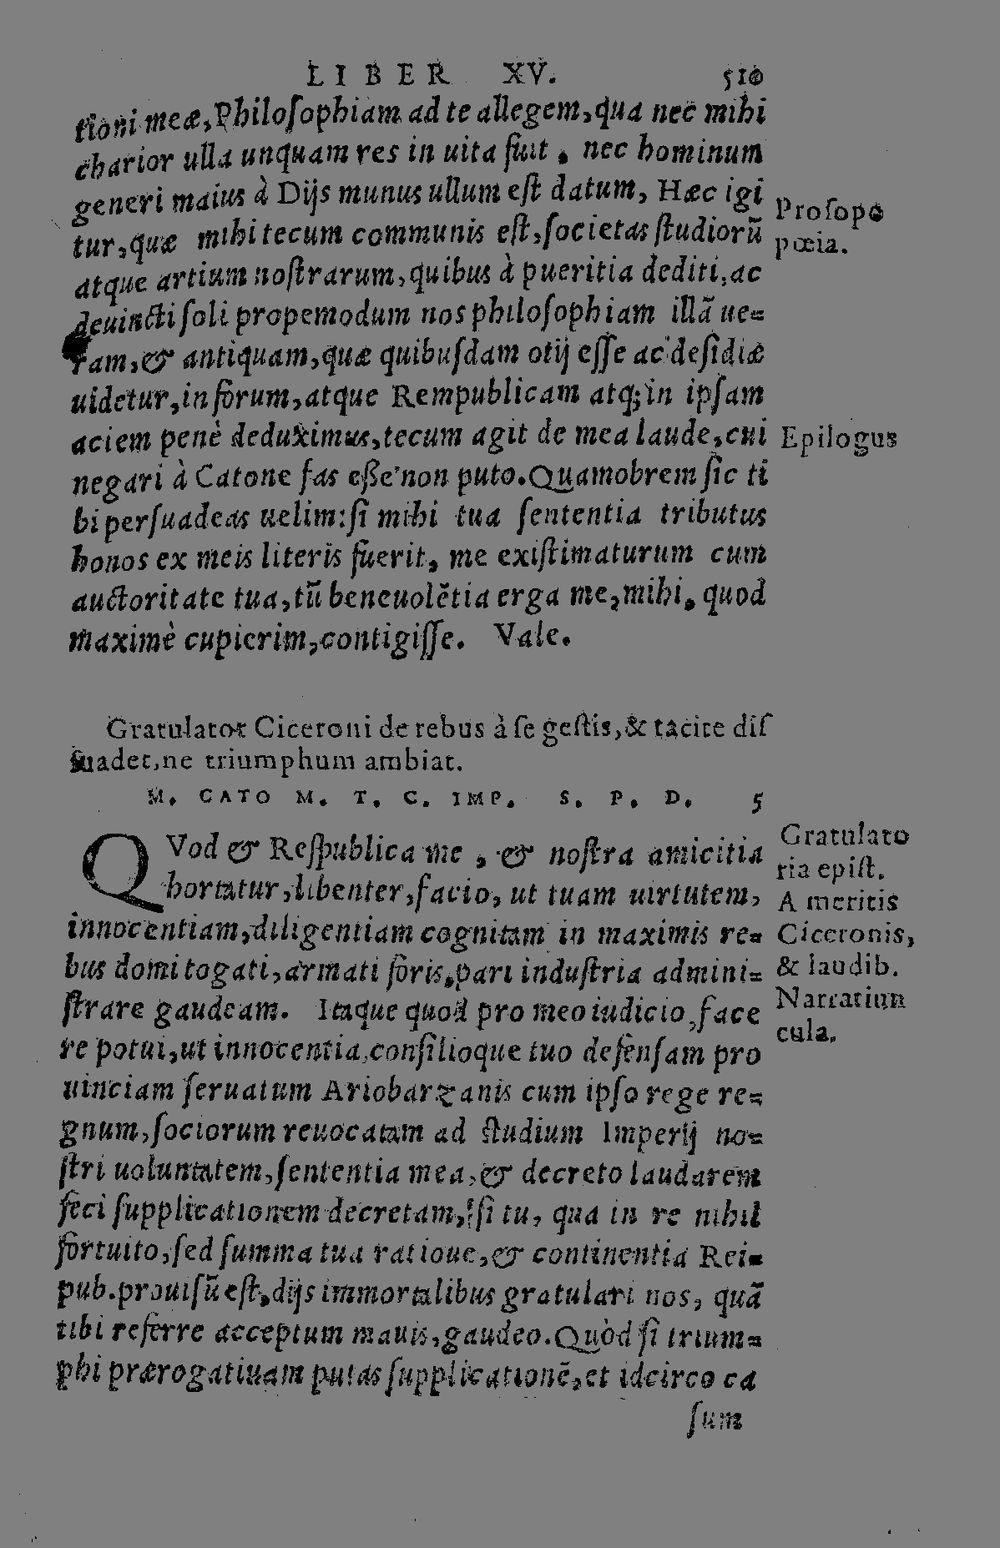 LIBER XV. 510
tioni meæ, Philoſophiam ad te allegem, qua nec mihi
charior ulla unquam res in uita fuit, nec hominum
generi maius à Dijs munus ullum eſt datum, Hæc igi
tur, quæ mihi tecum communis eſt, ſocietas ſtudiorũ
Proſopo
pœia.
atque artium noſtrarum, quibus à pueritia dediti, ac
deuincti ſoli propemodum nos philoſophiam illã ue=
ram, & antiquam, quæ quibuſdam otij eſſe ac deſidiæ
uidetur, in forum, atque Rempublicam atq; in ipſam
aciem penè deduximus, tecum agit de mea laude, cui
Epilogus
negari à Catone fas eße non puto. Quamobrem ſic ti
bi perſuadeas uelim: ſi mihi tua ſententia tributus
honos ex meis literis fuerit, me exiſtimaturum cum
auctoritate tua, tũ beneuolẽtia erga me, mihi, quod
maximè cupierim, contigiſſe. Vale.
Gratulator Ciceroni de rebus à ſe geſtis, & tacite diſ
ſuadet, ne triumphum ambiat.
M. CATO M. T. C. IMP. S. P. D. 5
QVod & Reſpublica me, & noſtra amicitia
hortatur, libenter, facio, ut tuam uirtutem,
innocentiam, diligentiam cognitam in maximis re=
bus domi togati, armati foris, pari induſtria admini=
ſtrare gaudeam. Itaque quod pro meo iudicio, face
Gratulato
ria epiſt.
A meritis
Ciceronis,
& laudib.
Narratiun
cula.
re potui, ut innocentia, conſilioque tuo defenſam pro
uinciam ſeruatum Ariobarzanis cum ipſo rege re=
gnum, ſociorum reuocatam ad ſtudium Imperij no=
ſtri uoluntatem, ſententia mea, & decreto laudarem
feci ſupplicationem decretam, ſi tu, qua in re nihil
fortuito, ſed ſumma tua ratioue, & continentia Rei=
pub. prouiſũ eſt, dijs immortalibus gratulari nos, quã
tibi referre acceptum mauis, gaudeo. Quòd ſi trium=
phi prærogatiuam putas ſupplicationẽ, et idcirco ca
ſum